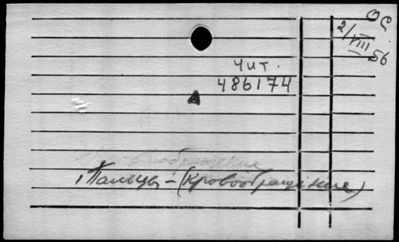 ОС
2/VIII 56
Чит.
486174
Пальцы - (кровообращение)